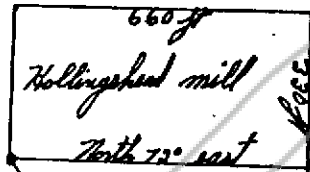 660 ft
Hollingshead mill
330 ft
North 72° east